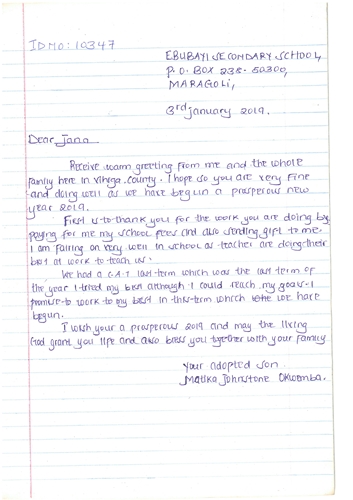 ID NO: 10347
EBUBAYI SECONDARY SCHOOL,
P.O. BOX 238-50300,
MARAGOLI,
3rd January 2019.
Dear Jana
Receive warm greeting from me and the whole
family here in Vihiga County. I hope so you are very fine
and doing well as we have begun a prosperous new
year 2019.
First is to thank you for the work you are doing by
paying for me my school fees and also sending gift to me.
I am fairing on very well in school as teacher are doing their
best at work to teach us.
We had a C.A.T last term which was the last term of
the year I tried my best although I could reach my goals I
promise to work to my best in this term which we have
begun.
I wish your a prosperous 2019 and may the living
God grant you life and also bless you together with your family
Your adopted son
Matika Johnstone